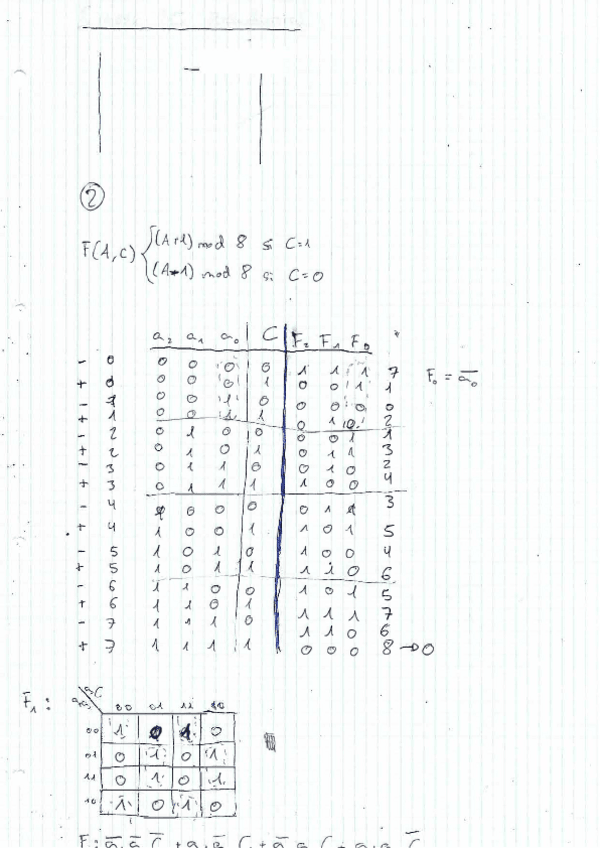 ②
F(A,C) { (A+1) mod 8 si C=1
(A-1) mod 8 si C=0
a₂ a₁ a₀ C F₂ F₁ F₀
- 0 0 0 0 0 1 1 1 7 F₀ = a̅₀
+ 0 0 0 0 1 0 0 1 1
- 1 0 0 1 0 0 0 0 0
+ 1 0 0 1 1 0 1 0 2
- 2 0 1 0 0 0 0 1 1
+ 2 0 1 0 1 0 1 1 3
- 3 0 1 1 0 0 1 0 2
+ 3 0 1 1 1 1 0 0 4
- 4 1 0 0 0 0 1 1 3
+ 4 1 0 0 1 1 0 1 5
- 5 1 0 1 0 1 0 0 4
+ 5 1 0 1 1 1 1 0 6
- 6 1 1 0 0 1 0 1 5
+ 6 1 1 0 1 1 1 1 7
- 7 1 1 1 0 1 1 0 6
+ 7 1 1 1 1 0 0 0 8 → 0
F₁ : a₀C
00 01 11 10
00 1 0 1 0
01 0 1 0 1
11 0 1 0 1
10 1 0 1 0